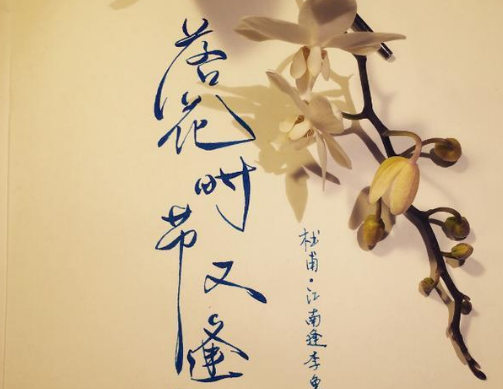 落花时节又逢
杜甫·江南逢李龟